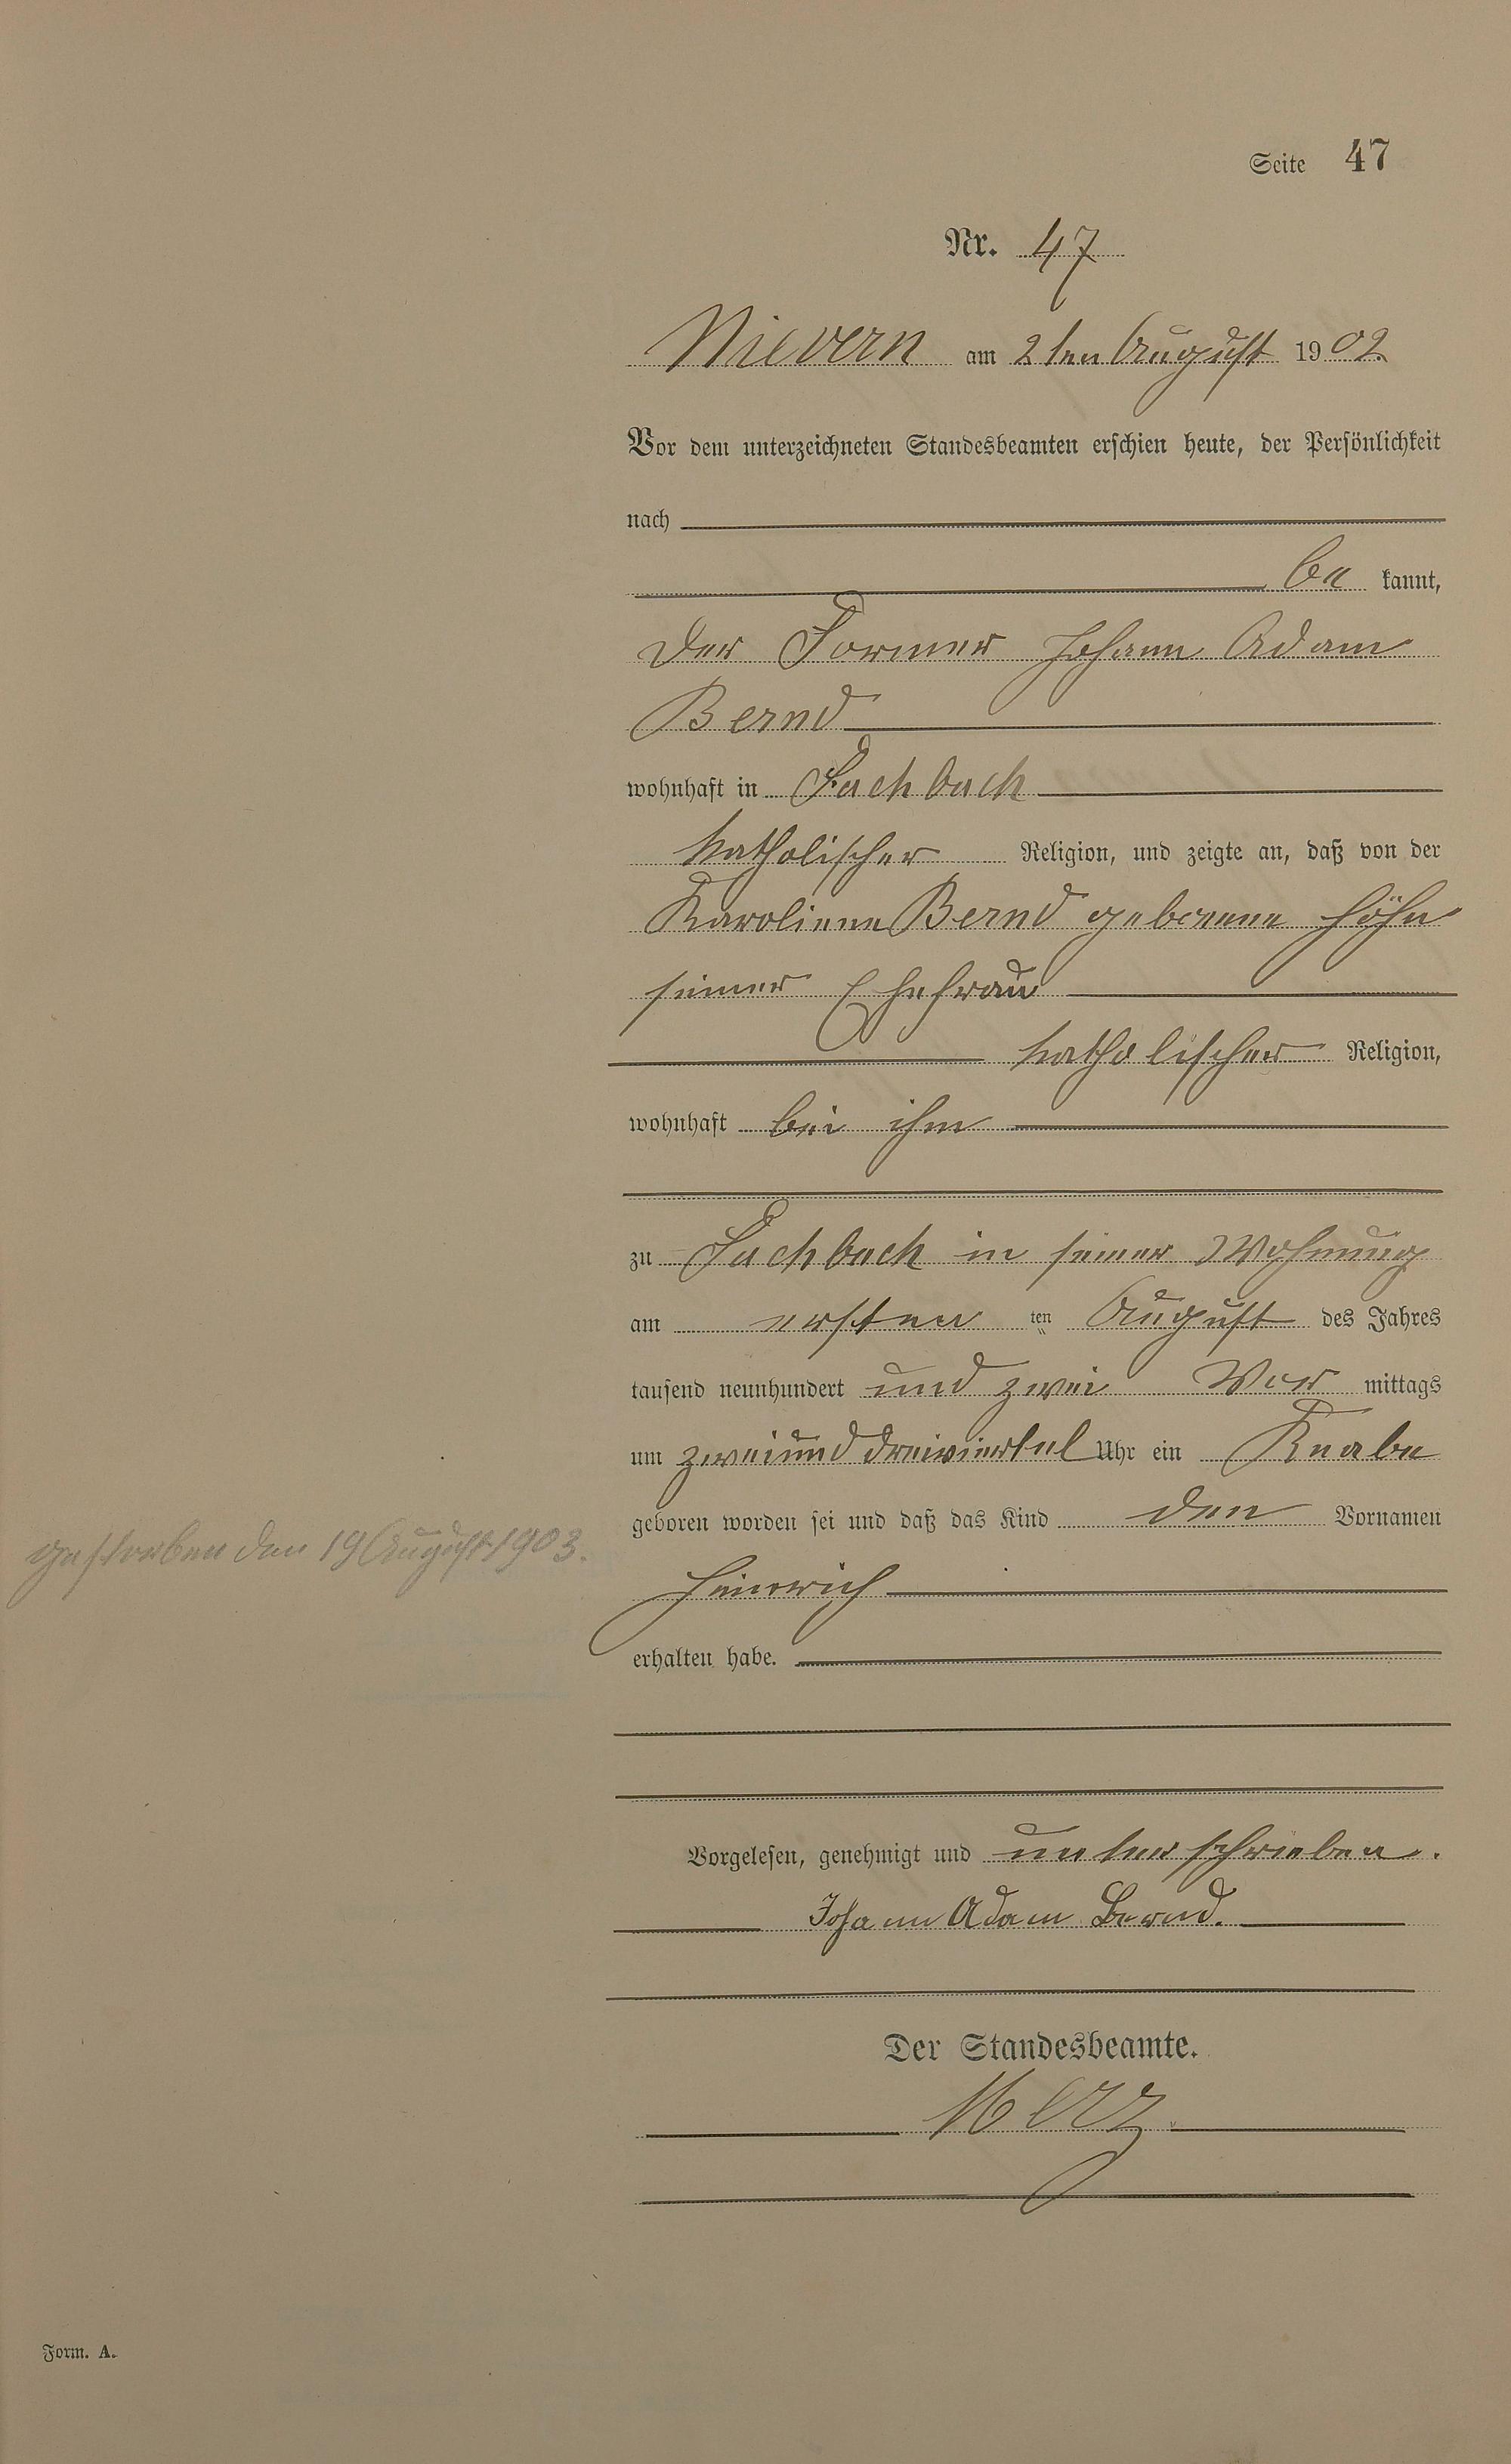 Seite 47
Nr. 47
Nievern am 2ten August 1902.
Vor dem unterzeichneten Standesbeamten erschien heute, der Persönlichkeit
nach
be kannt,
der Former Johann Adam
Bernd
wohnhaft in Fachbach
katholischer Religion, und zeigte an, daß von der
Karoliene Bernd geborene Höhn
seiner Ehefrau
katholischer Religion,
wohnhaft bei ihm
zu Fachbach in seiner Wohnung
am ersten ten August des Jahres
tausend neunhundert und zwei Vor mittags
um zweiund dreiviertel Uhr ein Knabe
geboren worden sei und daß das Kind den Vornamen
gestorben den 19 August 1903.
Heinrich
erhalten habe.
Vorgelesen, genehmigt und unterschrieben.
Johann Adam Bernd.
Der Standesbeamte.
Merz
Form. A.